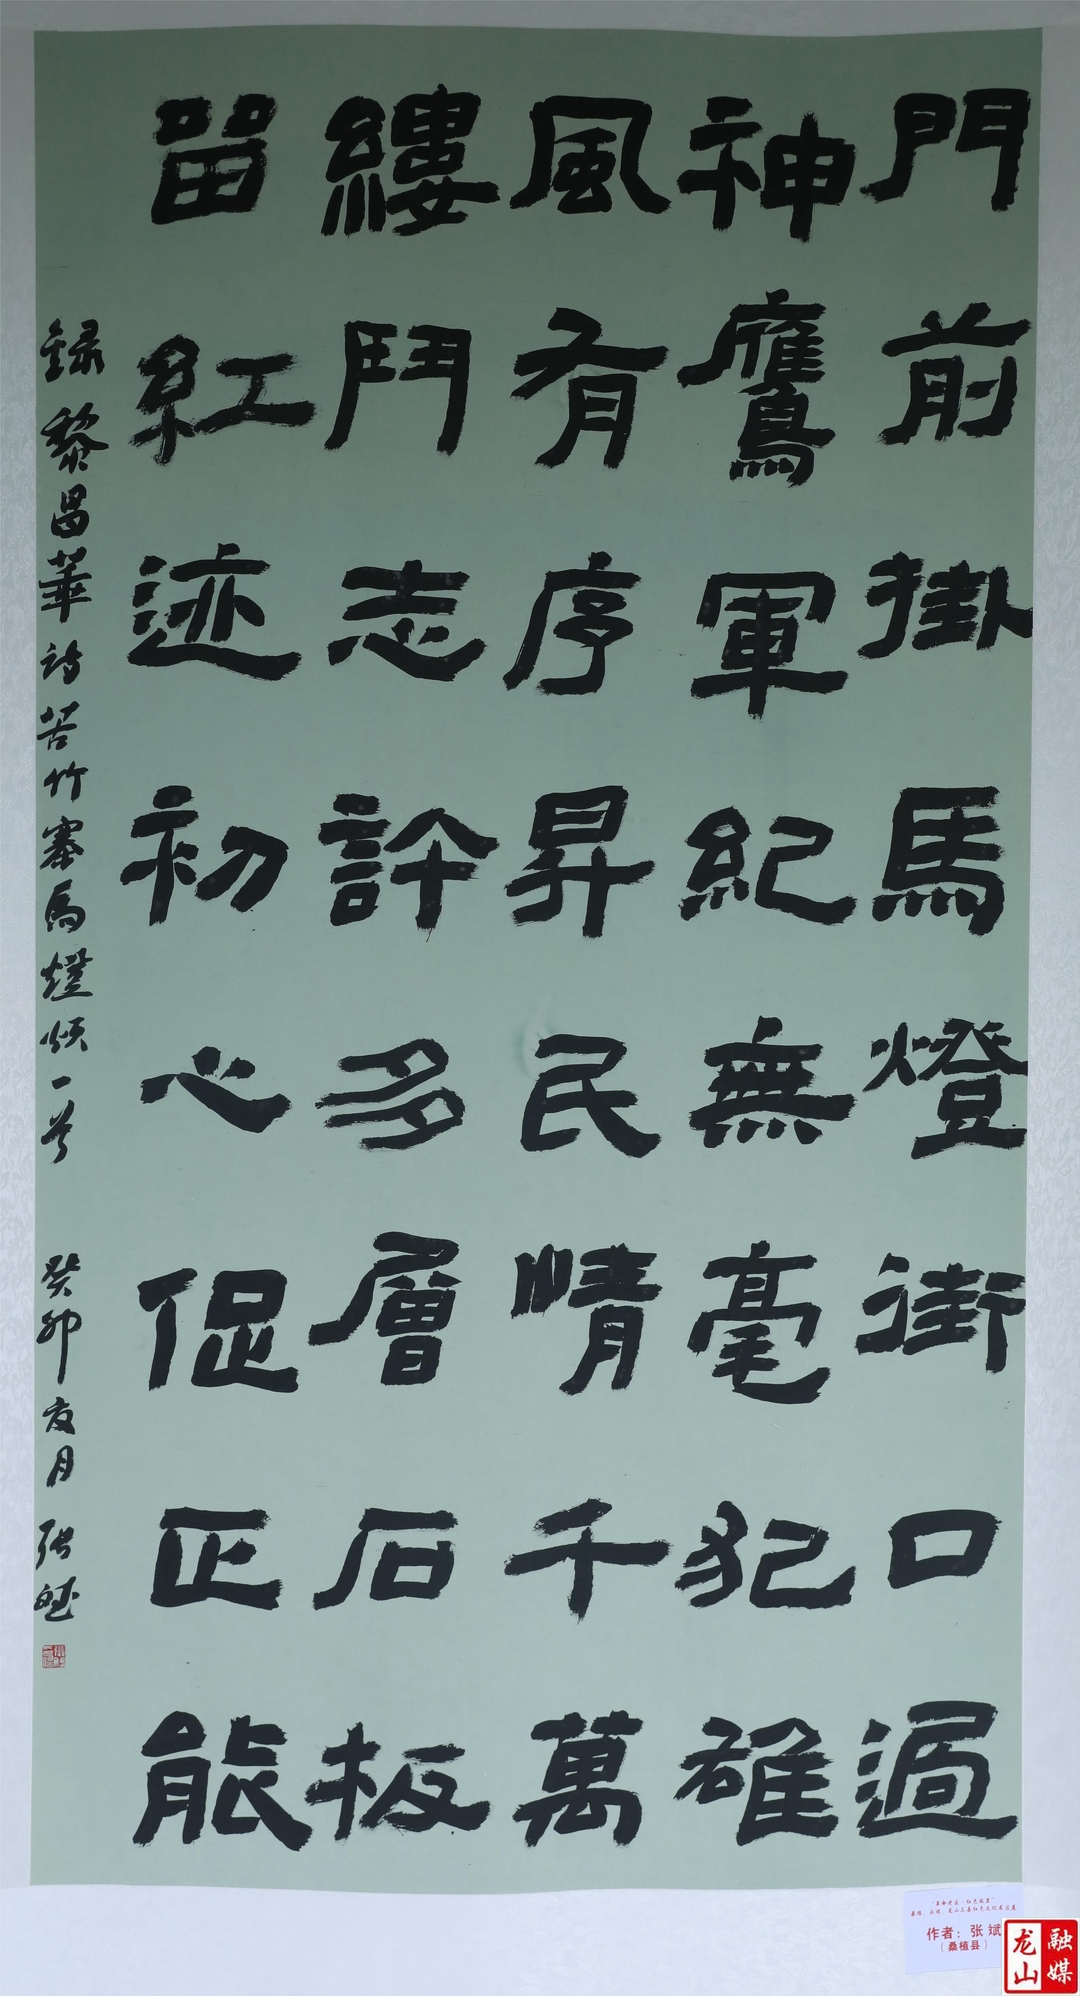 門前掛馬燈街口過
神鷹軍紀無毫犯雄
風有序昇民情千萬
縷鬥志許多層石板
畱紅迹初心促正能
錄黎昌華詩苦竹寨馬燈頌一首 癸卯夏月 張斌
作者：张 斌
（桑植县）
龙山 融媒